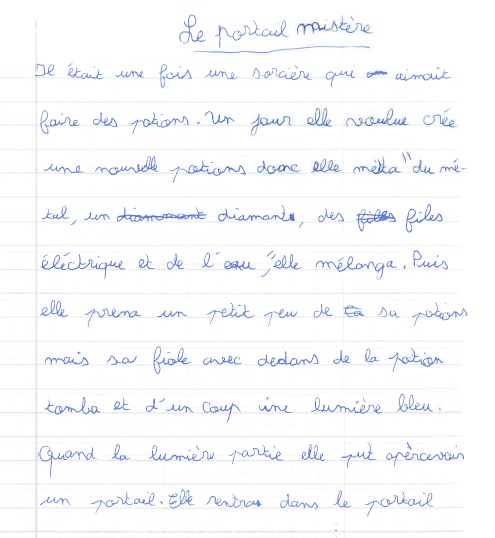 Le portail mistère
Il était une fois une sorcière que aimait
faire des potions. Un jour elle voulue crée
une nouvelle potions donc elle métta " du mé-
tal, un diamant, des files
éléctrique et de l'eau ", elle mélonga. Puis
elle prena un petit peu de sa potions
mais sa fiole avec dedans de la potion
tomba et d'un coup une lumière bleu.
Quand la lumière partie elle put apèrcevais
un portail. Elle rentra dans le portail